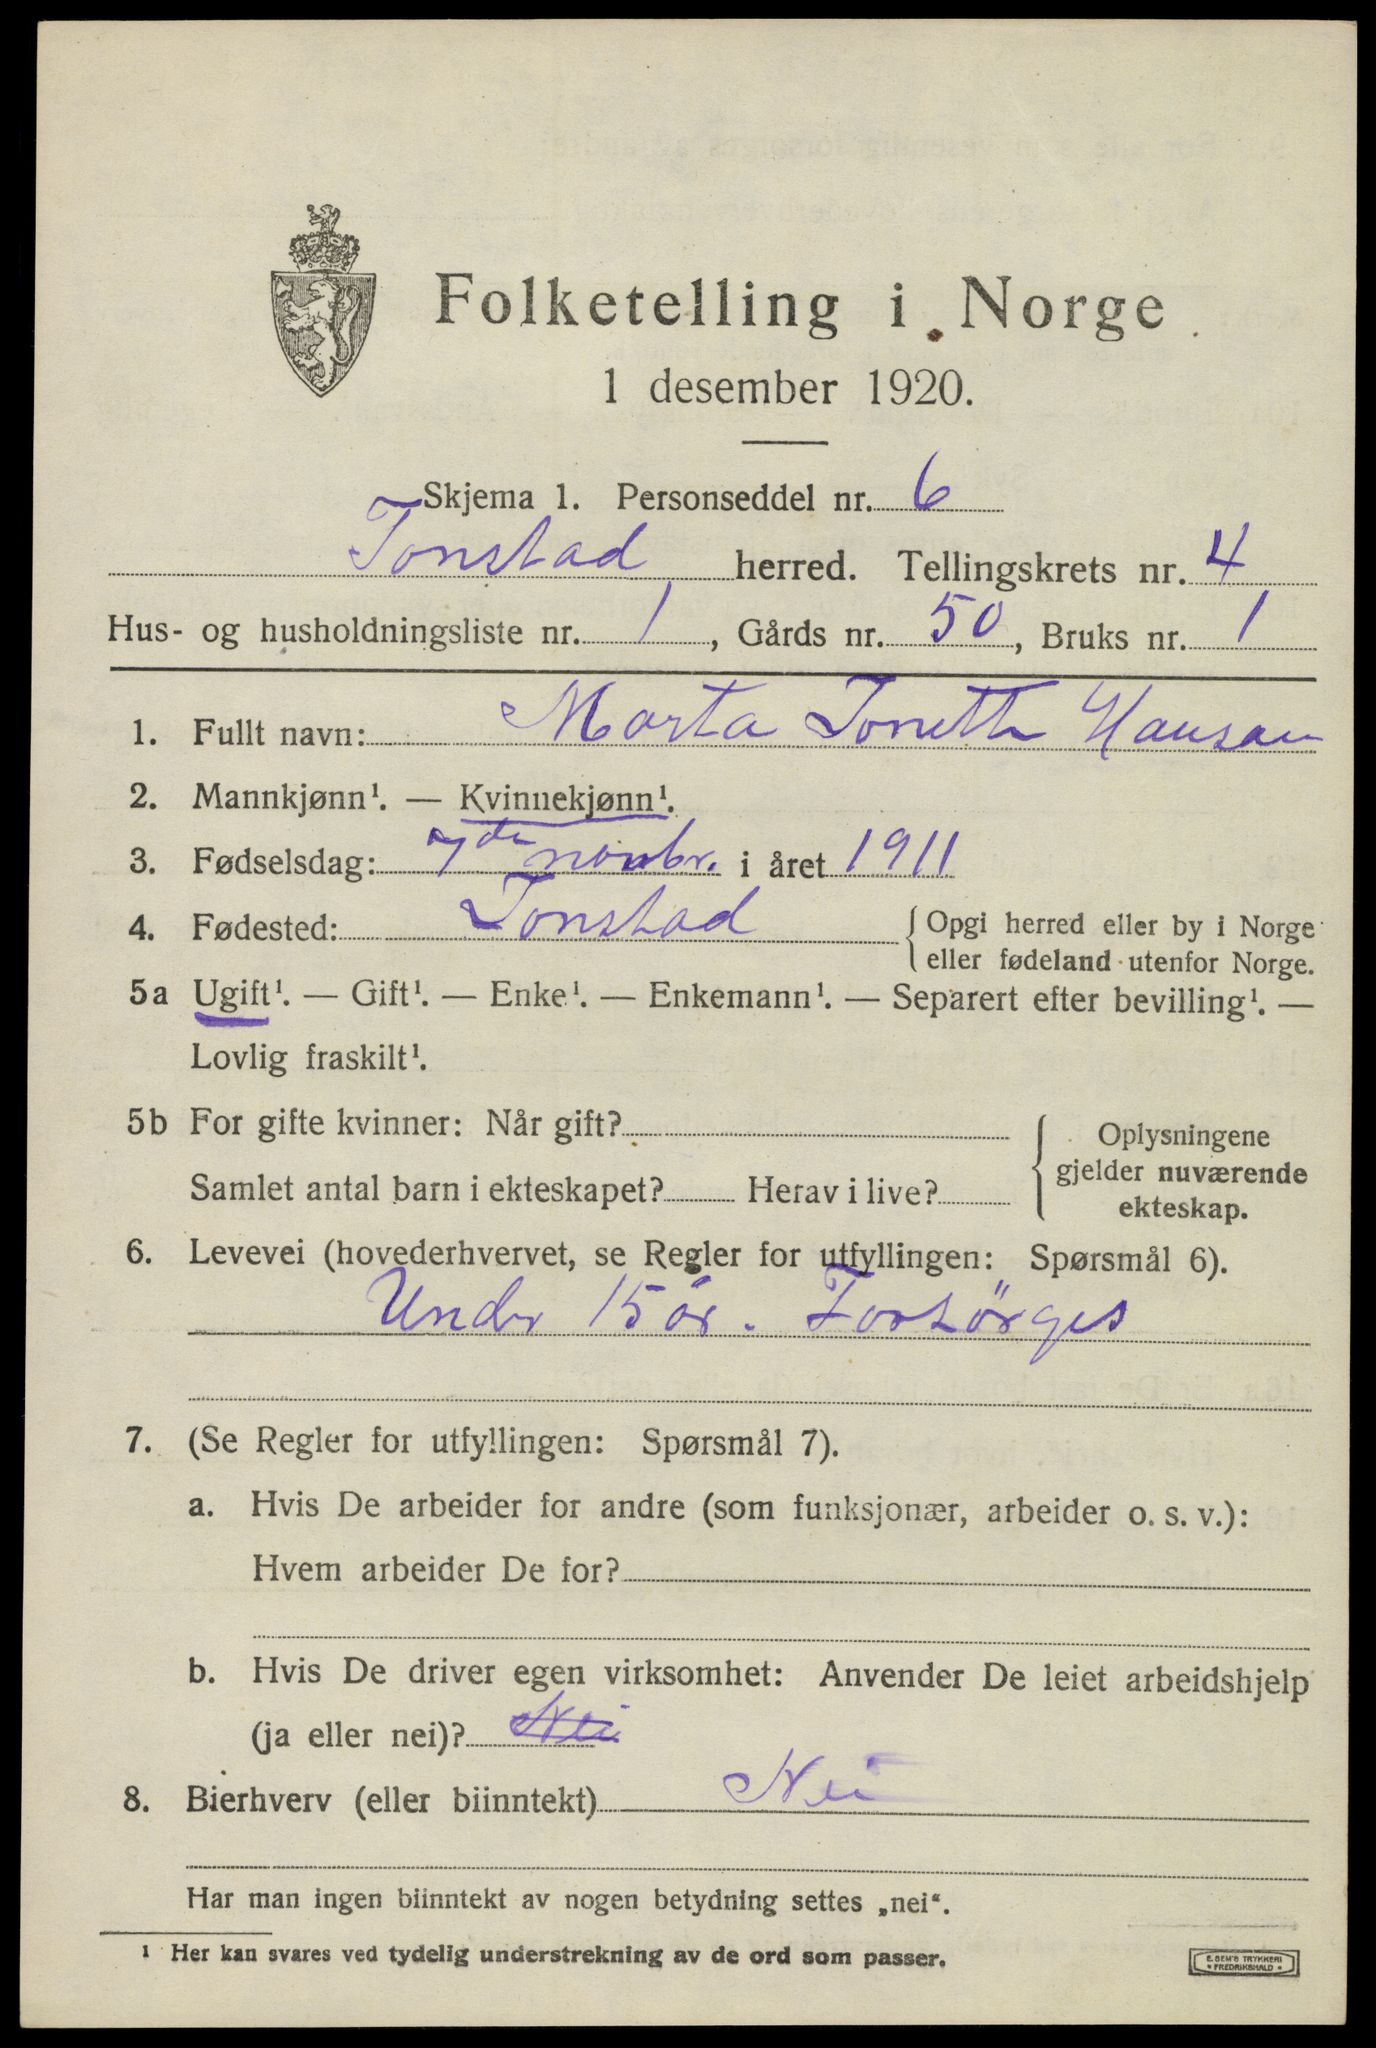 Folketelling i Norge
1 desember 1920.
Skjema 1. Personseddel nr. 6
Tonstad herred. Tellingskrets nr. 4
Hus- og husholdningsliste nr. 1, Gårds nr. 50, Bruks nr. 1
1. Fullt navn: Marta Tonette Hansen
2. Mannkjønn¹. — Kvinnekjønn¹.
3. Fødselsdag: 7de novbr. i året 1911
4. Fødested: Tonstad {Opgi herred eller by i Norge
eller fødeland utenfor Norge.
5a Ugift¹. — Gift¹. — Enke¹. — Enkemann¹. — Separert efter bevilling¹. —
Lovlig fraskilt¹.
5b For gifte kvinner: Når gift?
Samlet antal barn i ekteskapet? Herav i live?
Oplysningene
gjelder nuværende
ekteskap.
6. Levevei (hovederhvervet, se Regler for utfyllingen: Spørsmål 6).
Under 15 år. Forsörges
7. (Se Regler for utfyllingen: Spørsmål 7).
a. Hvis De arbeider for andre (som funksjonær, arbeider o. s. v.):
Hvem arbeider De for?
b. Hvis De driver egen virksomhet: Anvender De leiet arbeidshjelp
(ja eller nei)? Nei
8. Bierhverv (eller biinntekt) Nei
Har man ingen biinntekt av nogen betydning settes „nei“.
¹ Her kan svares ved tydelig understrekning av de ord som passer.
E. SEM'S TRYKKERI
• FREDRIKSHALD •